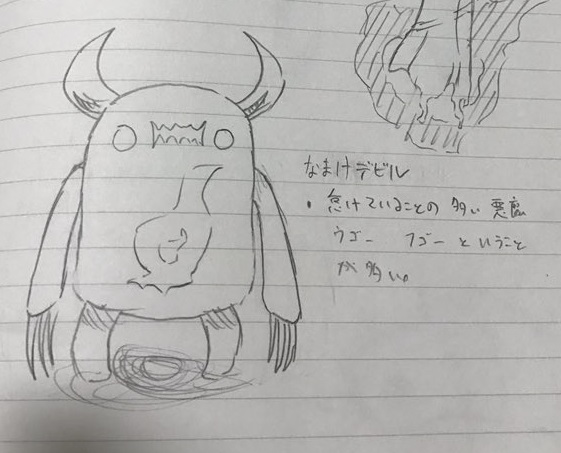 なまけデビル
・怠けていることの多い悪魔
ウゴー フゴー ということ
が多い。